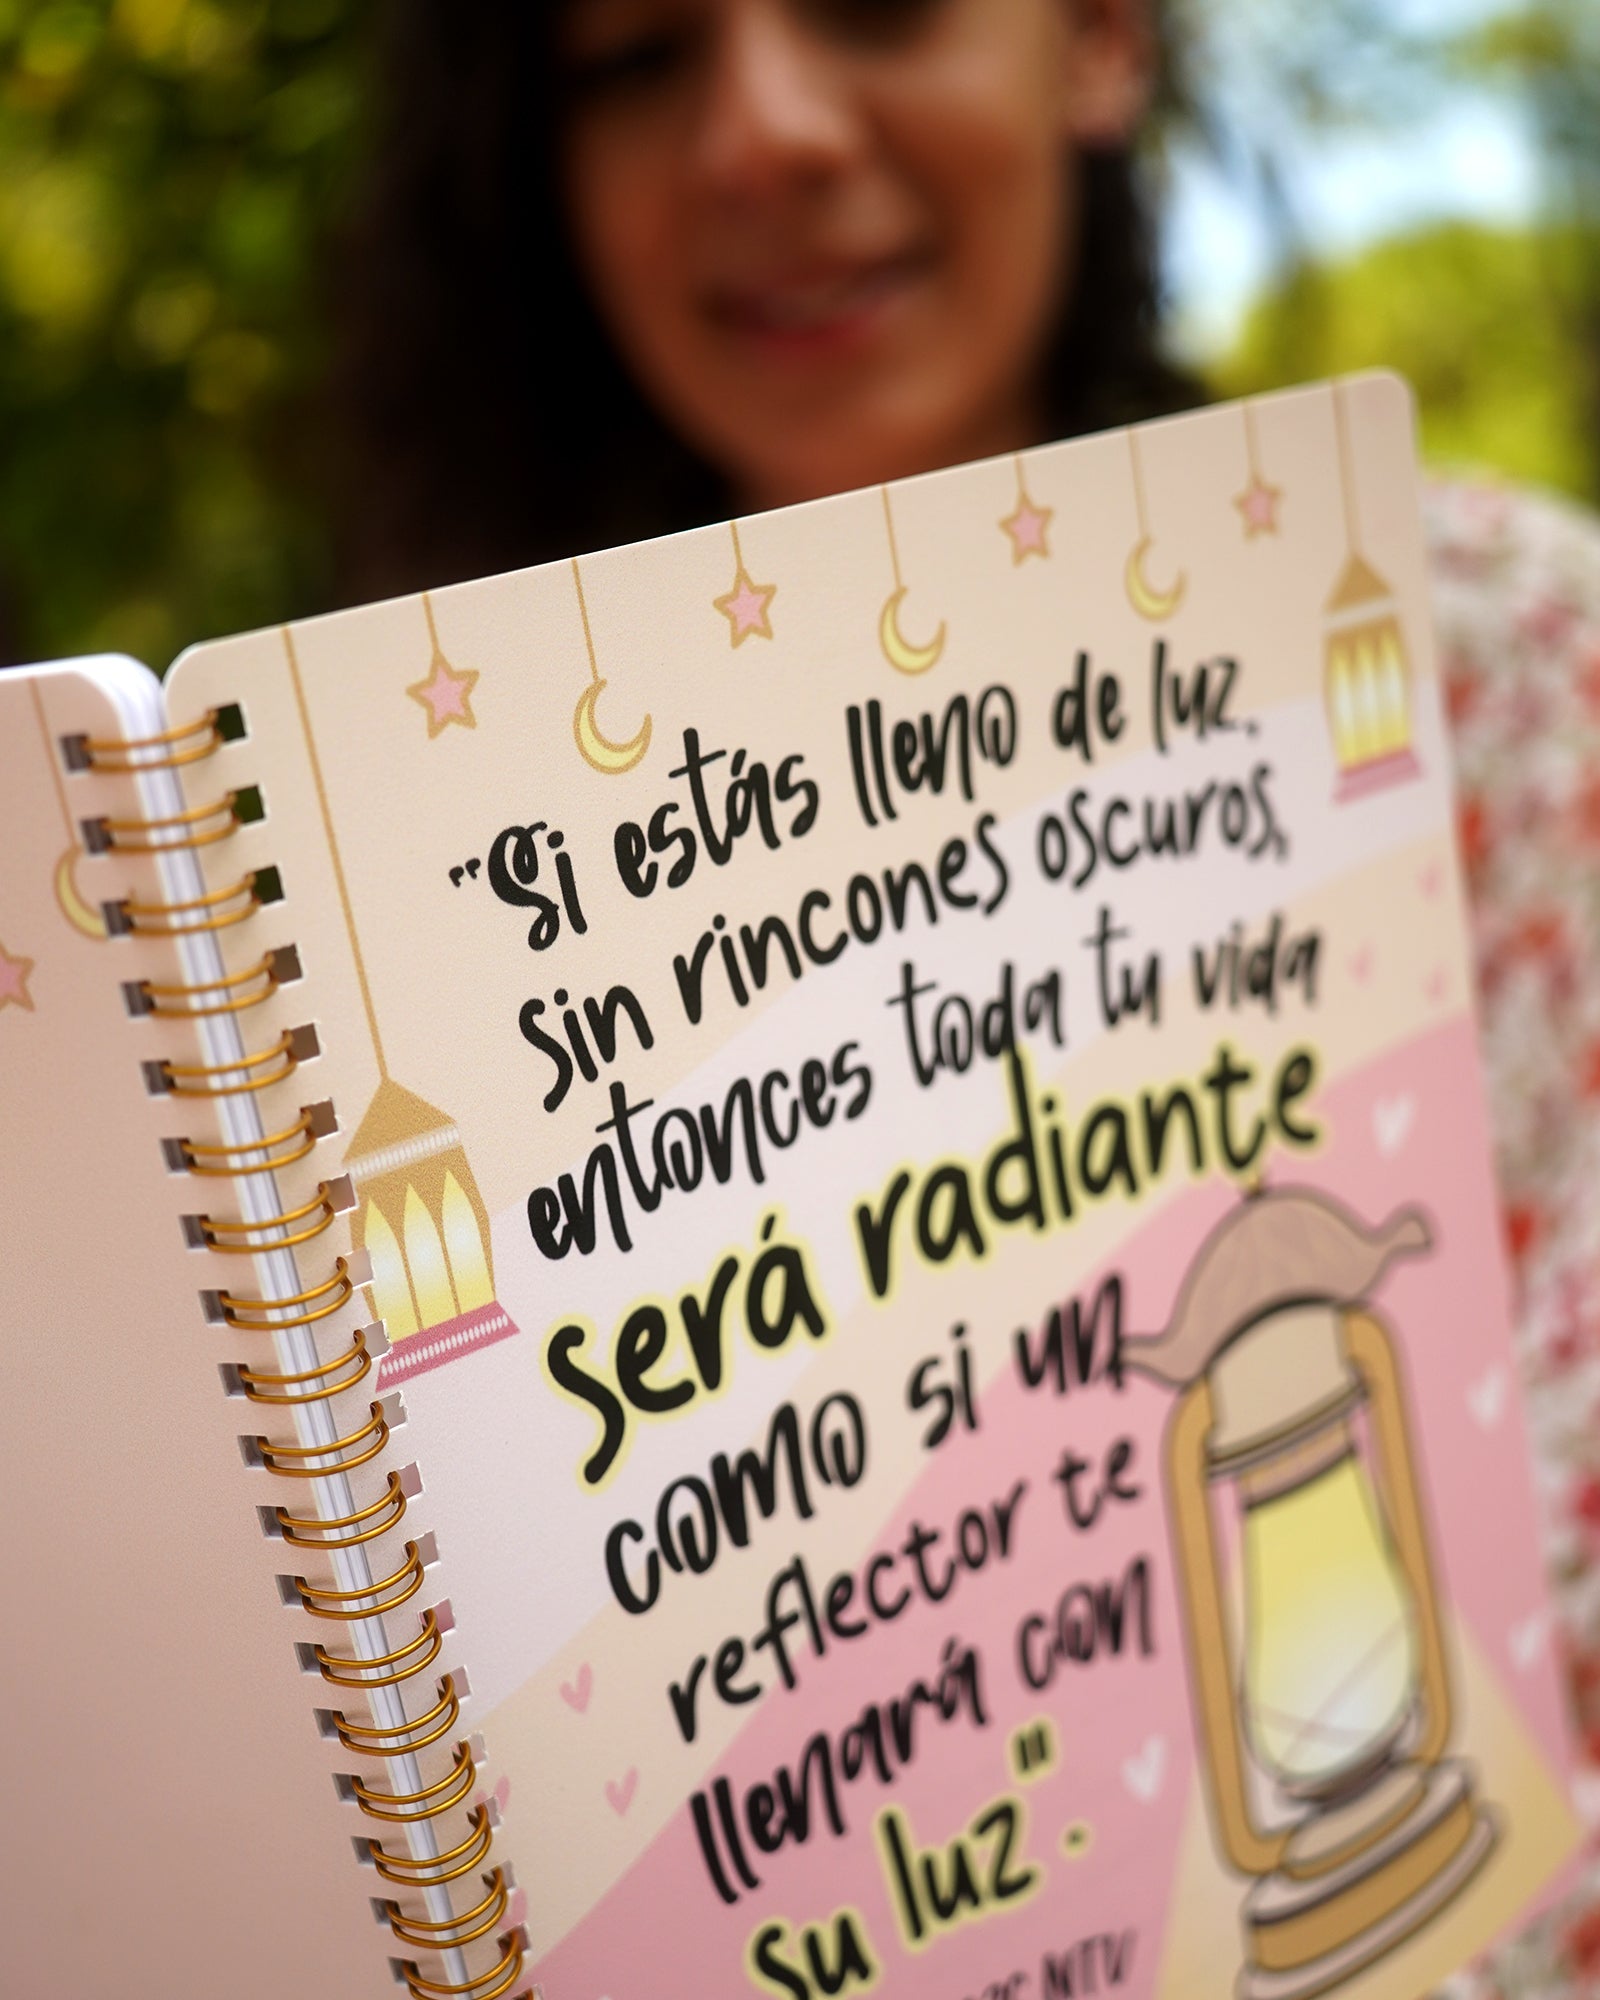 "Si estás lleno de luz.
sin rincones oscuros,
entonces toda tu vida
será radiante
como si un
reflector te
llenará con
su luz".
NTV